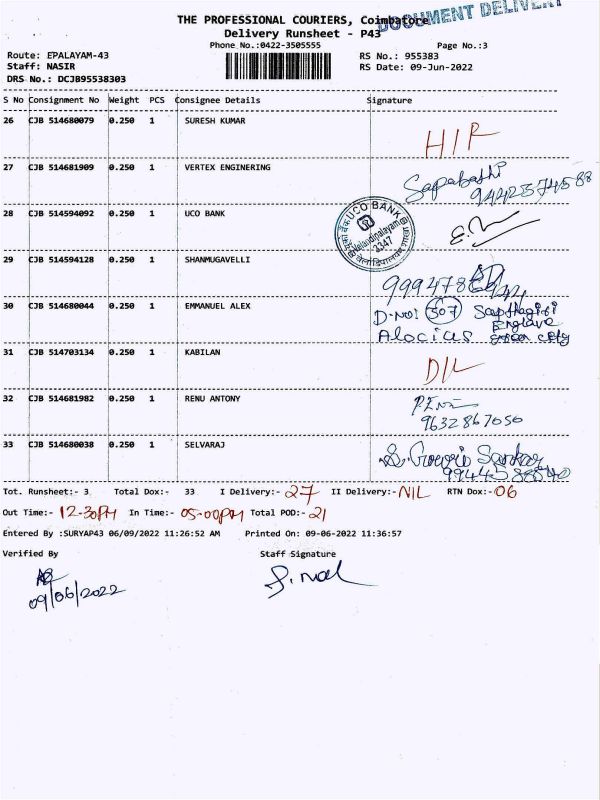 THE PROFESSIONAL COURIERS, Coimbatore
DOCUMENT DELIVERY
Delivery Runsheet - P43
Phone No.:0422-3505555
Page No.:3
Route: EPALAYAM-43
RS No.: 955383
Staff: NASIR
RS Date: 09-Jun-2022
DRS No.: DCJB95538303
S No Consignment No Weight PCS Consignee Details Signature
26 CJB 514680079 0.250 1 SURESH KUMAR
27 CJB 514681909 0.250 1 VERTEX ENGINERING
Sapabathi
9442574588
28 CJB 514594092 0.250 1 UCO BANK
UCO BANK
2347
29 CJB 514594128 0.250 1 SHANMUGAVELLI
30 CJB 514680044 0.250 1 EMMANUEL ALEX
D-NO: 307 Sapthagiri
Englave
Alocias green city
31 CJB 514703134 0.250 1 KABILAN
D/L
32 CJB 514681982 0.250 1 RENU ANTONY
9632867050
33 CJB 514680038 0.250 1 SELVARAJ
Tot. Runsheet:- 3 Total Dox:- 33 I Delivery:- 27 II Delivery:- NIL RTN Dox:- 06
Out Time:- 12-30PM In Time:- 05-00PM Total POD:- 21
Entered By :SURYAP43 06/09/2022 11:26:52 AM Printed On: 09-06-2022 11:36:57
Verified By Staff Signature
09/06/2022